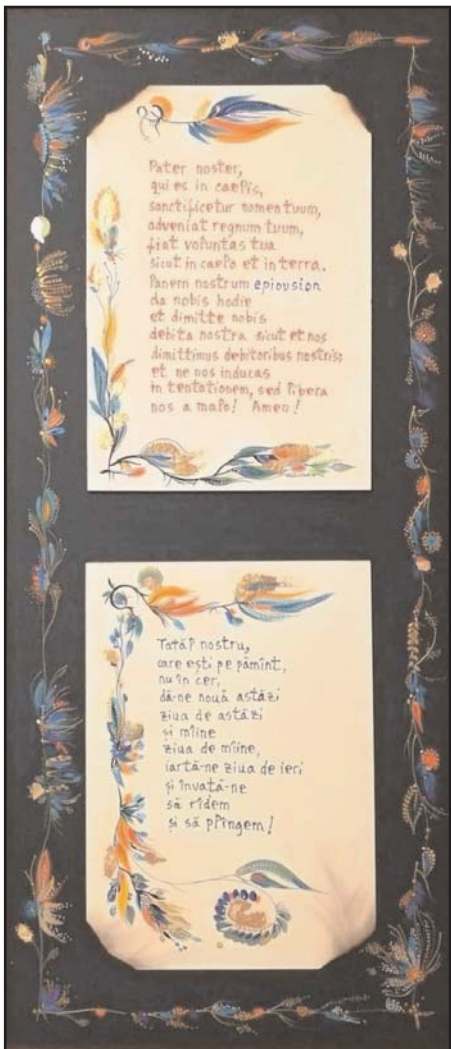 Pater noster,
qui es in caelis,
sanctificetur nomen tuum,
adveniat regnum tuum,
fiat voluntas tua
sicut in caelo et in terra.
Panem nostrum epiousion
da nobis hodie
et dimitte nobis
debita nostra sicut et nos
dimittimus debitoribus nostris;
et ne nos inducas
in tentationem, sed libera
nos a malo! Amen!
Tatăl nostru,
care ești pe pămînt,
nu în cer,
dă-ne nouă astăzi
ziua de astăzi
și mîine
ziua de mîine,
iartă-ne ziua de ieri
și învată-ne
să rîdem
și să plîngem!